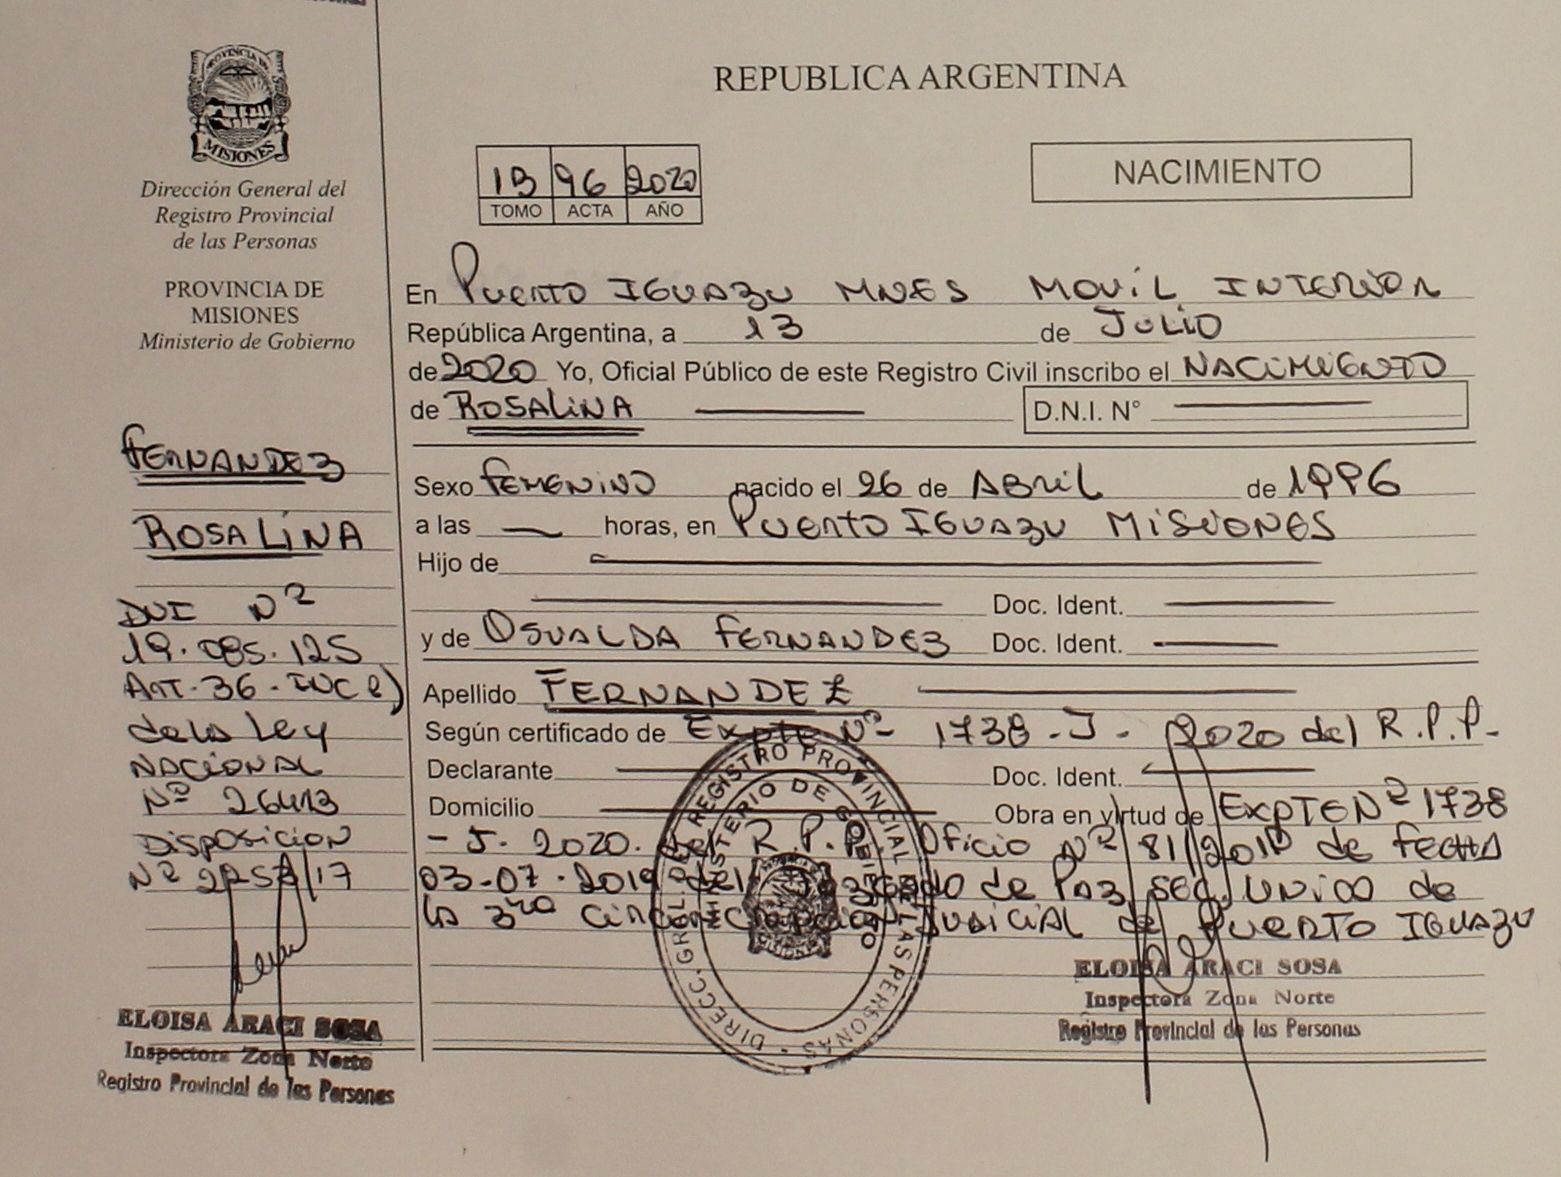 PROVINCIA DE
MISIONES
Dirección General del
Registro Provincial
de las Personas
PROVINCIA DE
MISIONES
Ministerio de Gobierno
FERNANDEZ
ROSALINA
DNI Nº
19.085.125
ART.36-INC e)
de la Ley
NACIONAL
Nº 26413
DISPOSICION
ELOISA ARACI SOSA
Inspectora Zona Norte
Registro Provincial de las Personas
REPUBLICA ARGENTINA
1B 96 2020
TOMO ACTA AÑO
NACIMIENTO
En PUERTO IGUAZU MNES MOVIL INTERIOR
República Argentina, a 13 de JULIO
de 2020 Yo, Oficial Público de este Registro Civil inscribo el NACIMIENTO
de ROSALINA D.N.I. N°
Sexo FEMENINO nacido el 26 de ABRIL de 1996
a las horas, en PUERTO IGUAZU MISIONES
Hijo de
Doc. Ident.
y de OSVALDA FERNANDEZ Doc. Ident.
Apellido FERNANDEZ
Según certificado de EXPTE Nº 1738-J-2020 del R.P.P.
Declarante Doc. Ident.
Domicilio Obra en virtud de EXPTE Nº 1738
-J-2020. del R.P.P. Oficio Nº 81/2019 de FECHA
03-07-2019 del Juzgado de PAZ seg. UNICO de
la 3ra Circunscripcion JUDICIAL de PUERTO IGUAZU
DIRECC. GRAL. DEL REGISTRO PROVINCIAL DE LAS PERSONAS
MINISTERIO DE GOBIERNO
ELOISA ARACI SOSA
Inspectora Zona Norte
Registro Provincial de las Personas